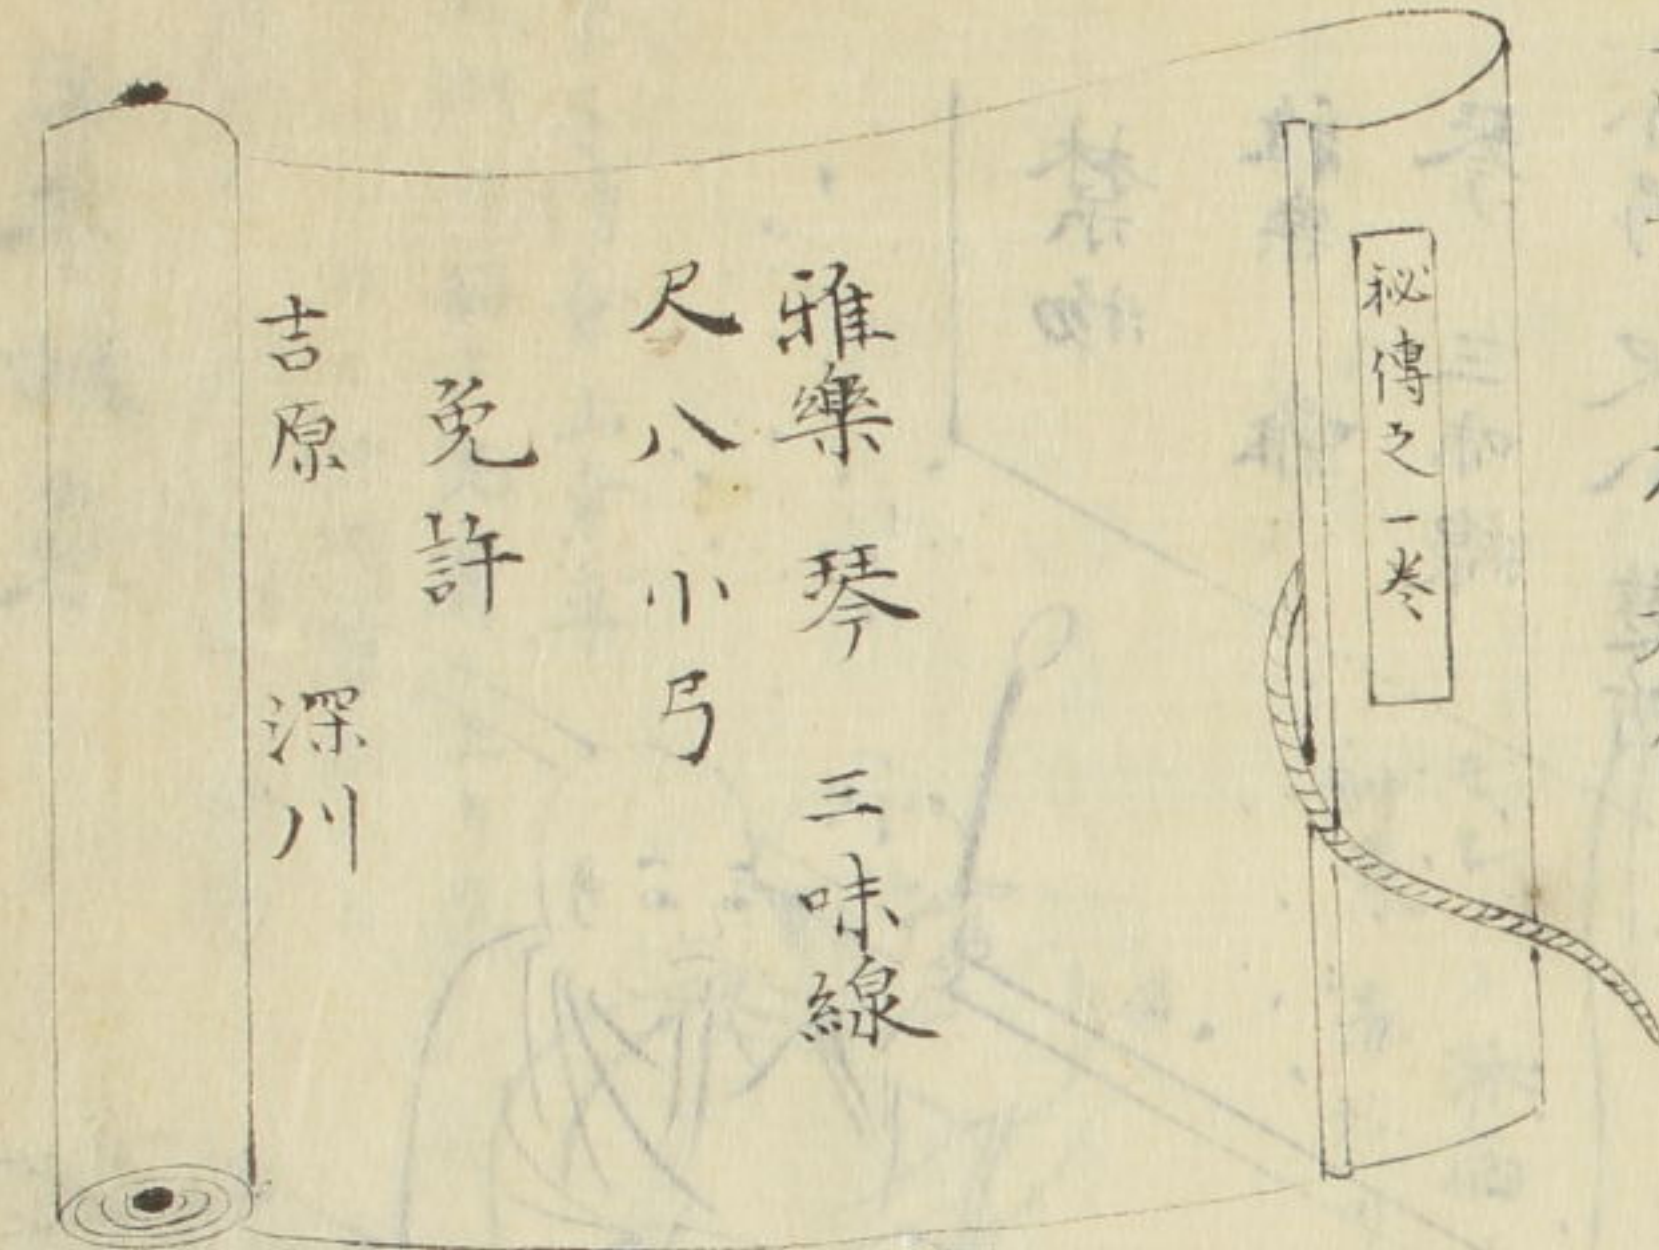 秘傳之一巻
雅樂 琴 三味線
尺八 小弓
免許
吉原 深川